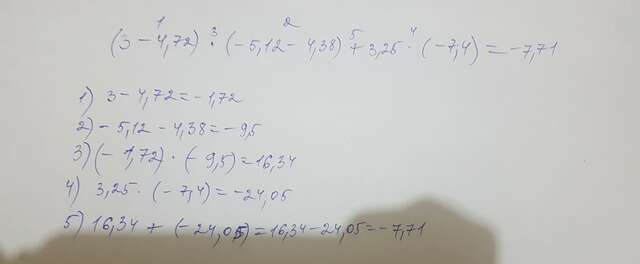 1 2
(3 - 4,72) ³· (-5,12 - 4,38) ⁵+ 3,25 ⁴· (-7,4) = -7,71
1) 3 - 4,72 = -1,72
2) -5,12 - 4,38 = -9,5
3) (-1,72) · (-9,5) = 16,34
4) 3,25 · (-7,4) = -24,05
5) 16,34 + (-24,05) = 16,34 - 24,05 = -7,71